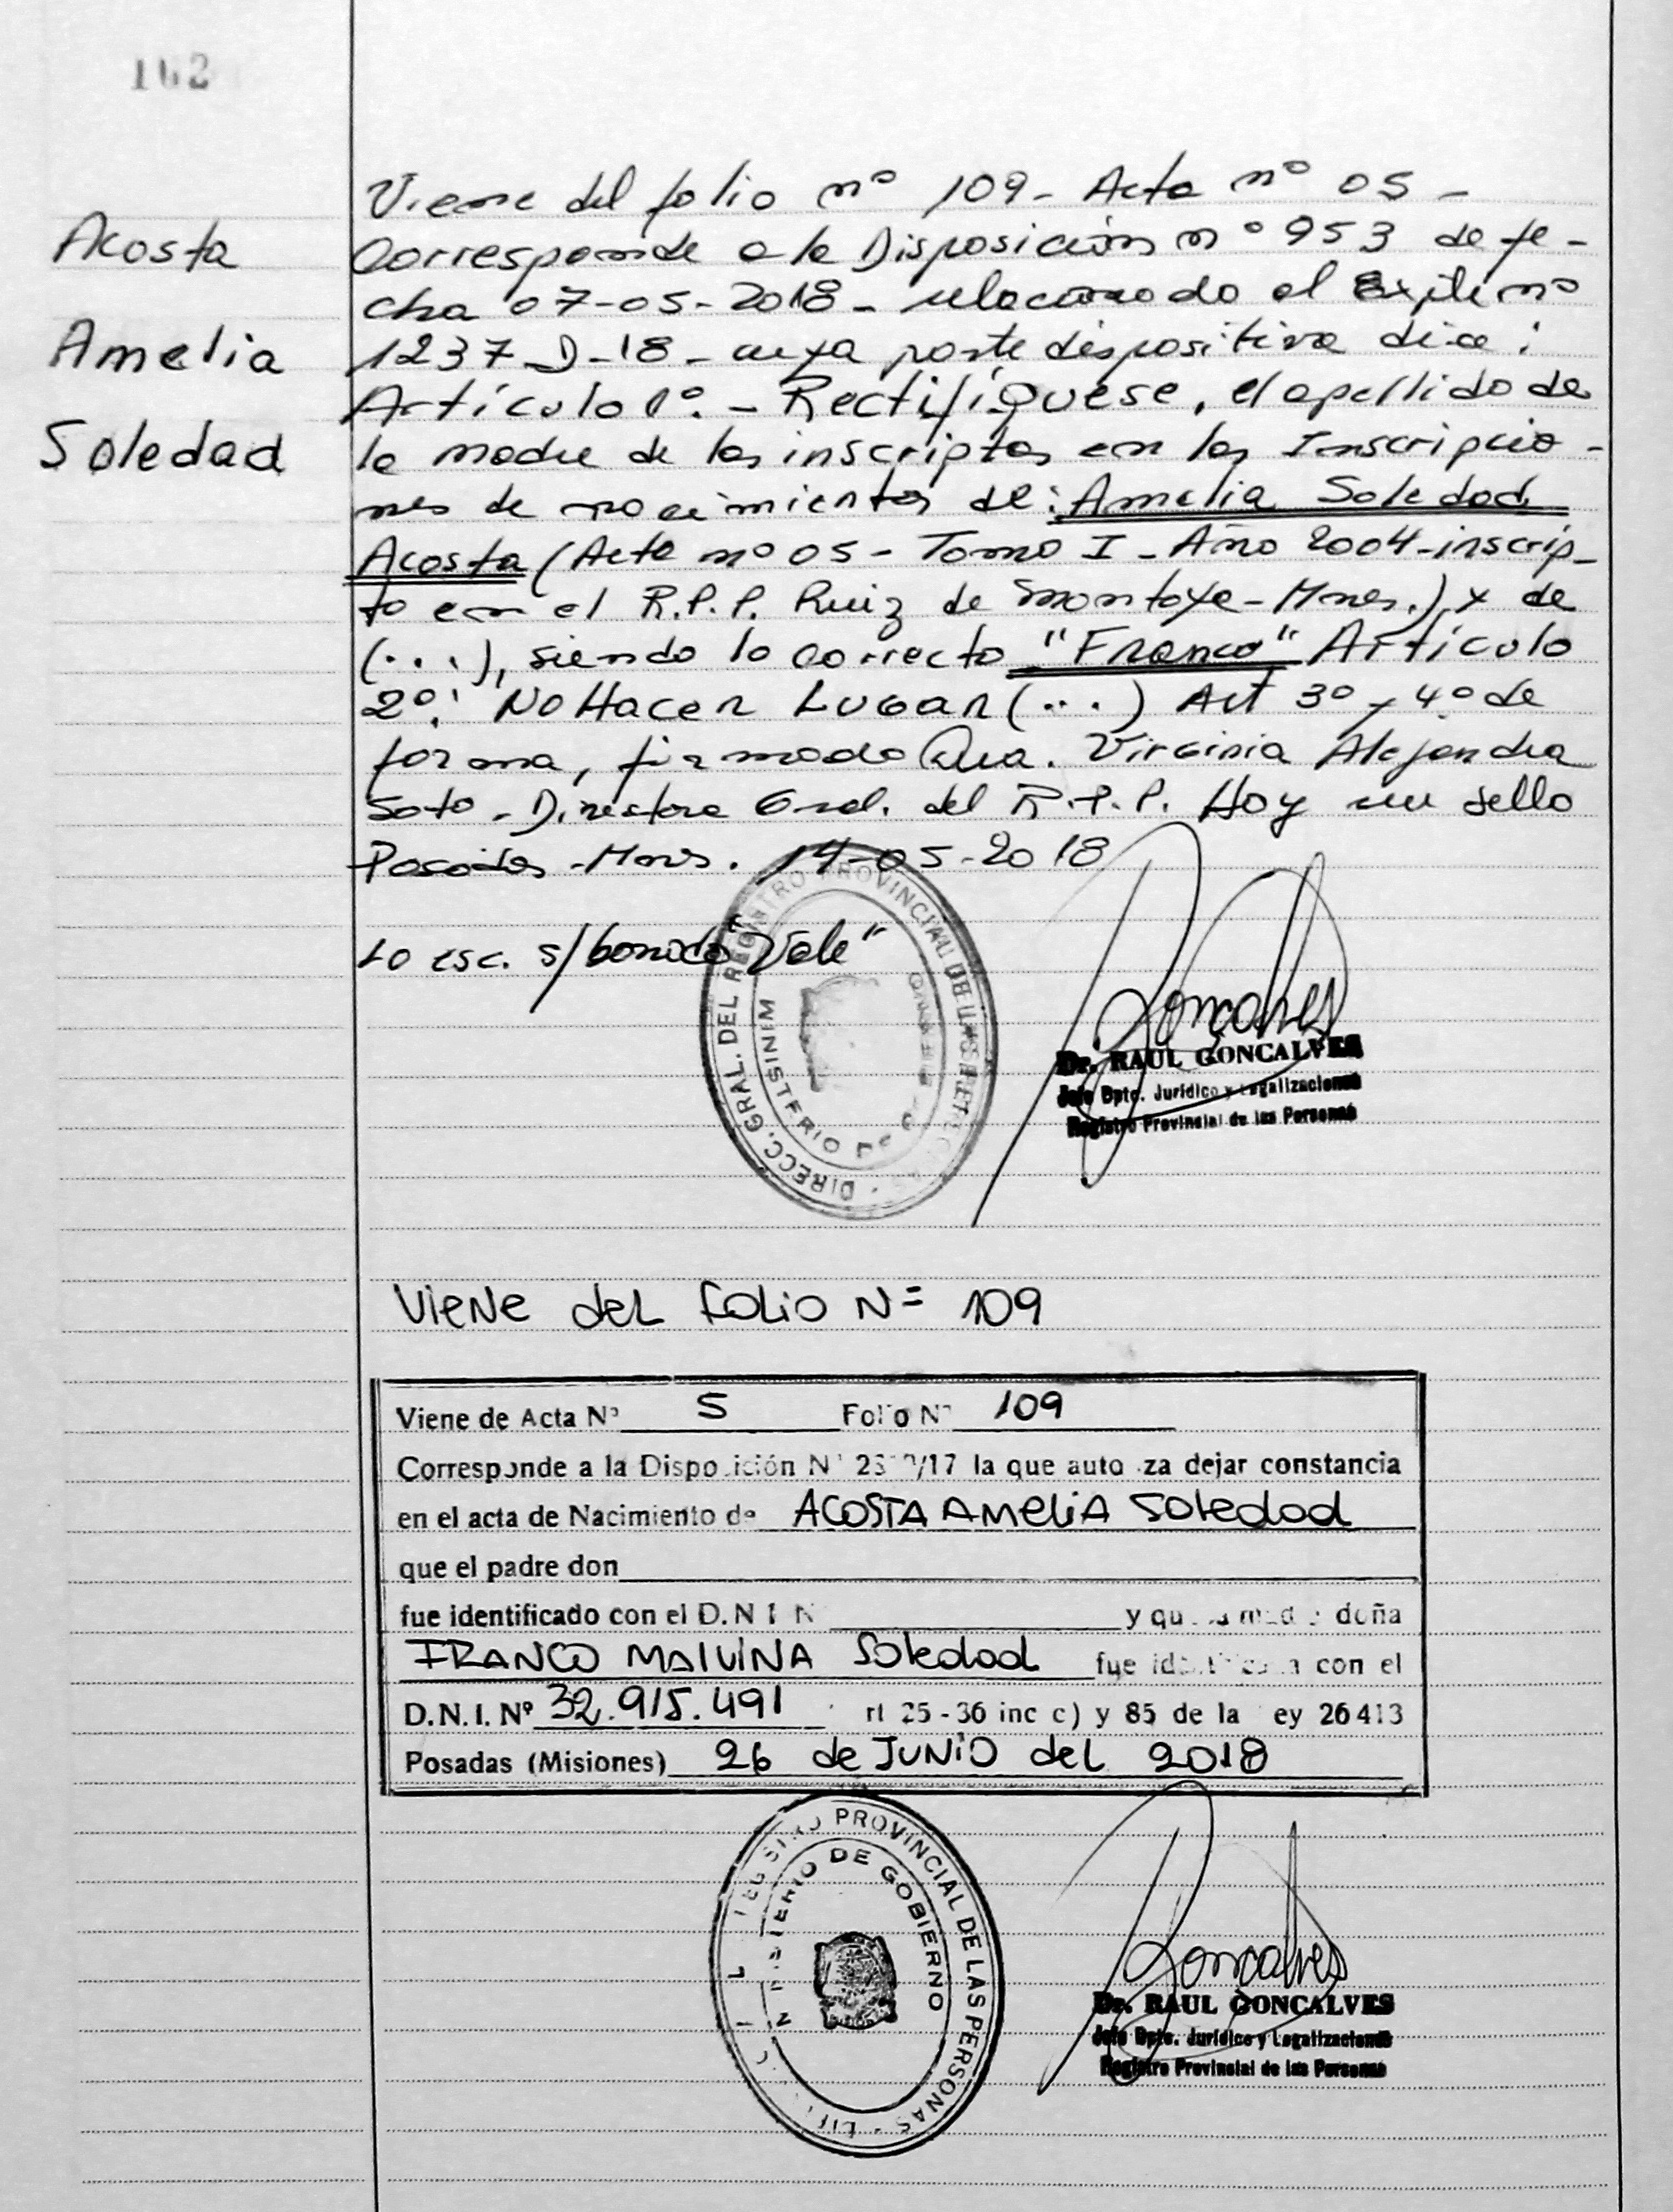 162
Acosta
Amelia
Soledad
Viene del folio nº 109 - Acta nº 05 -
Corresponde a la Disposición nº 953 de fe-
cha 07-05-2018 - relacionado al Expte nº
1237-D-18 - cuya parte dispositiva dice:
Artículo 1º. - Rectifíquese, el apellido de
la madre de los inscriptos en las Inscripcio-
nes de nacimientos de: Amelia Soledad
Acosta (Acta nº 05 - Tomo I - Año 2004 - inscrip-
to en el R.P.P. Ruiz de Montoya - Mnes.) y de
(...), siendo lo correcto "Franco" Artículo
2º: No Hacer Lugar (...) Art 3º y 4º de
forma, firmado Dra. Virginia Alejandra
Soto - Directora Gral. del R.P.P. Hay un sello
Posadas - Mnes. 14-05-2018
Lo esc. s/borrado "Vale"
DIRECC. GRAL. DEL REGISTRO PROVINCIAL DE LAS
MINISTERIO DE
Dr. RAUL GONCALVES
Jefe Dpto. Jurídico y Legalizaciones
Registro Provincial de las Personas
Viene del Folio N= 109
Viene de Acta Nº 5 Folio Nº 109
Corresponde a la Disposición Nº /17 la que autoriza dejar constancia
en el acta de Nacimiento de ACOSTA AMELIA Soledad
que el padre don
fue identificado con el D.N.I. N y que la madre doña
FRANCO MALVINA Soledad fue identificada con el
D.N.I. Nº 32.915.491 rt 25 - 36 inc c) y 85 de la ey 26413
Posadas (Misiones) 26 de JUNIO del 2018
PROVINCIAL DE LAS PERSONAS
DE GOBIERNO
Dr. RAUL GONCALVES
Jefe Dpto. Jurídico y Legalizaciones
Registro Provincial de las Personas